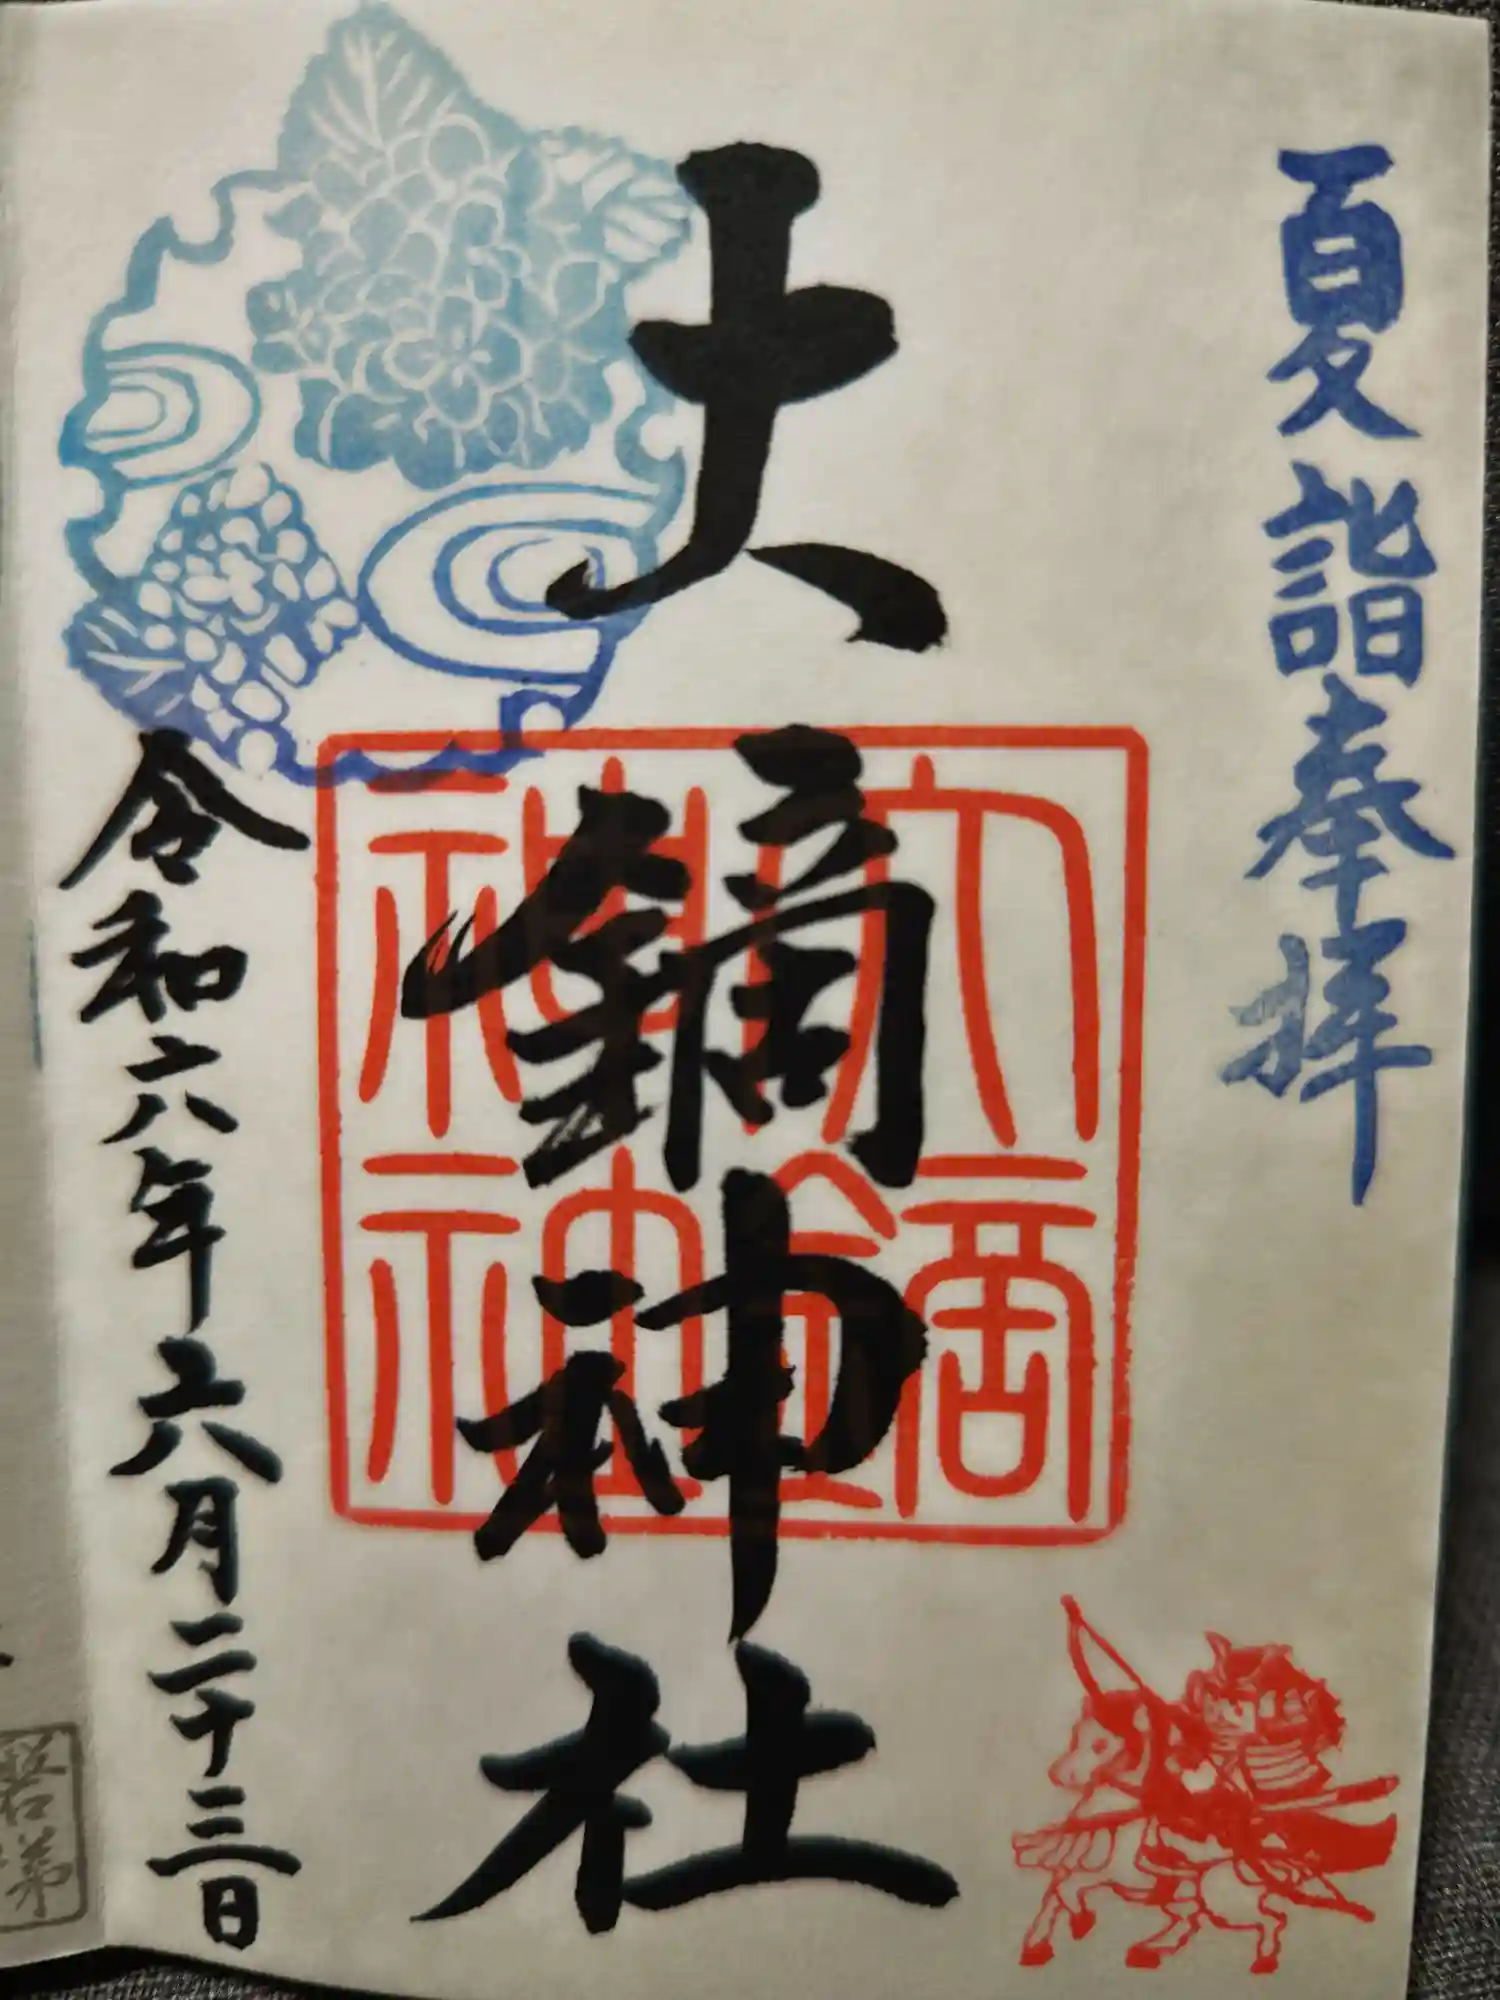 夏詣奉拝
大鏑神社
大鏑神社
令和六年六月二十三日